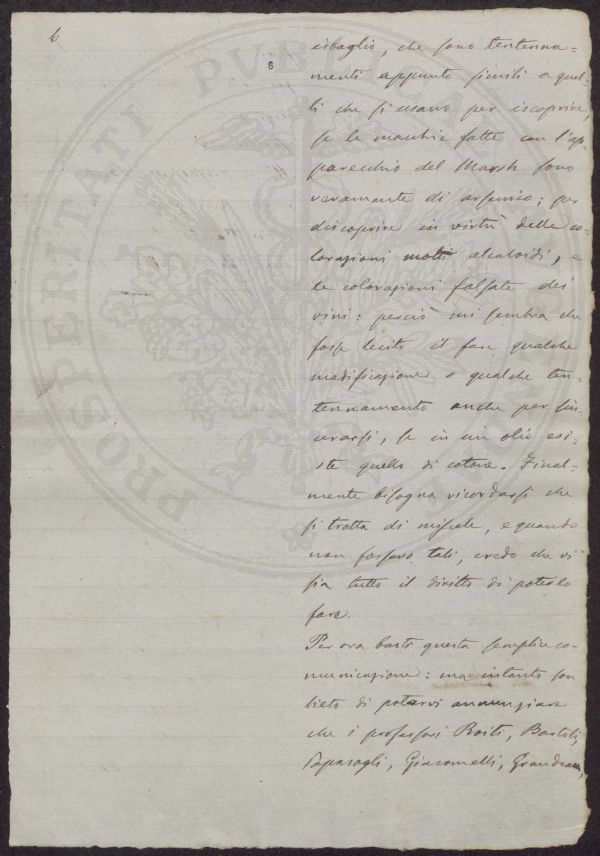 6
6
isbaglio, che sono tentenna-
menti appunto simili a quel-
li che si usano per iscoprire,
se le macchie fatte con l'ap-
parecchio del Marsh sono
veramente di arsenico; per
discoprire in virtù delle co-
lorazioni molti alcaloidi, e
le colorazioni falsate dei
vini: perciò mi sembra che
fosse lecito il fare qualche
modificazione o qualche ten-
tennamento anche per sin-
cerarsi, se in un olio esi-
ste quello di cotone. Final-
mente bisogna ricordarsi che
si tratta di miscele, e quando
non fossero tali, credo che vi
sia tutto il diritto di poterlo
fare.
Per ora basti questa semplice co-
municazione: ma intanto son
lieto di potervi annunziare
che i professori Roiti, Bartoli,
Papasogli, Giacomelli, Grandeau,
PROSPERITATI PVBLICAE